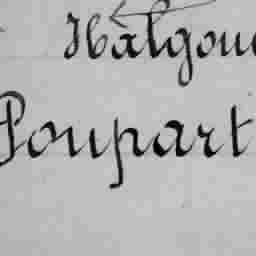 Hàlgoue
Poupart